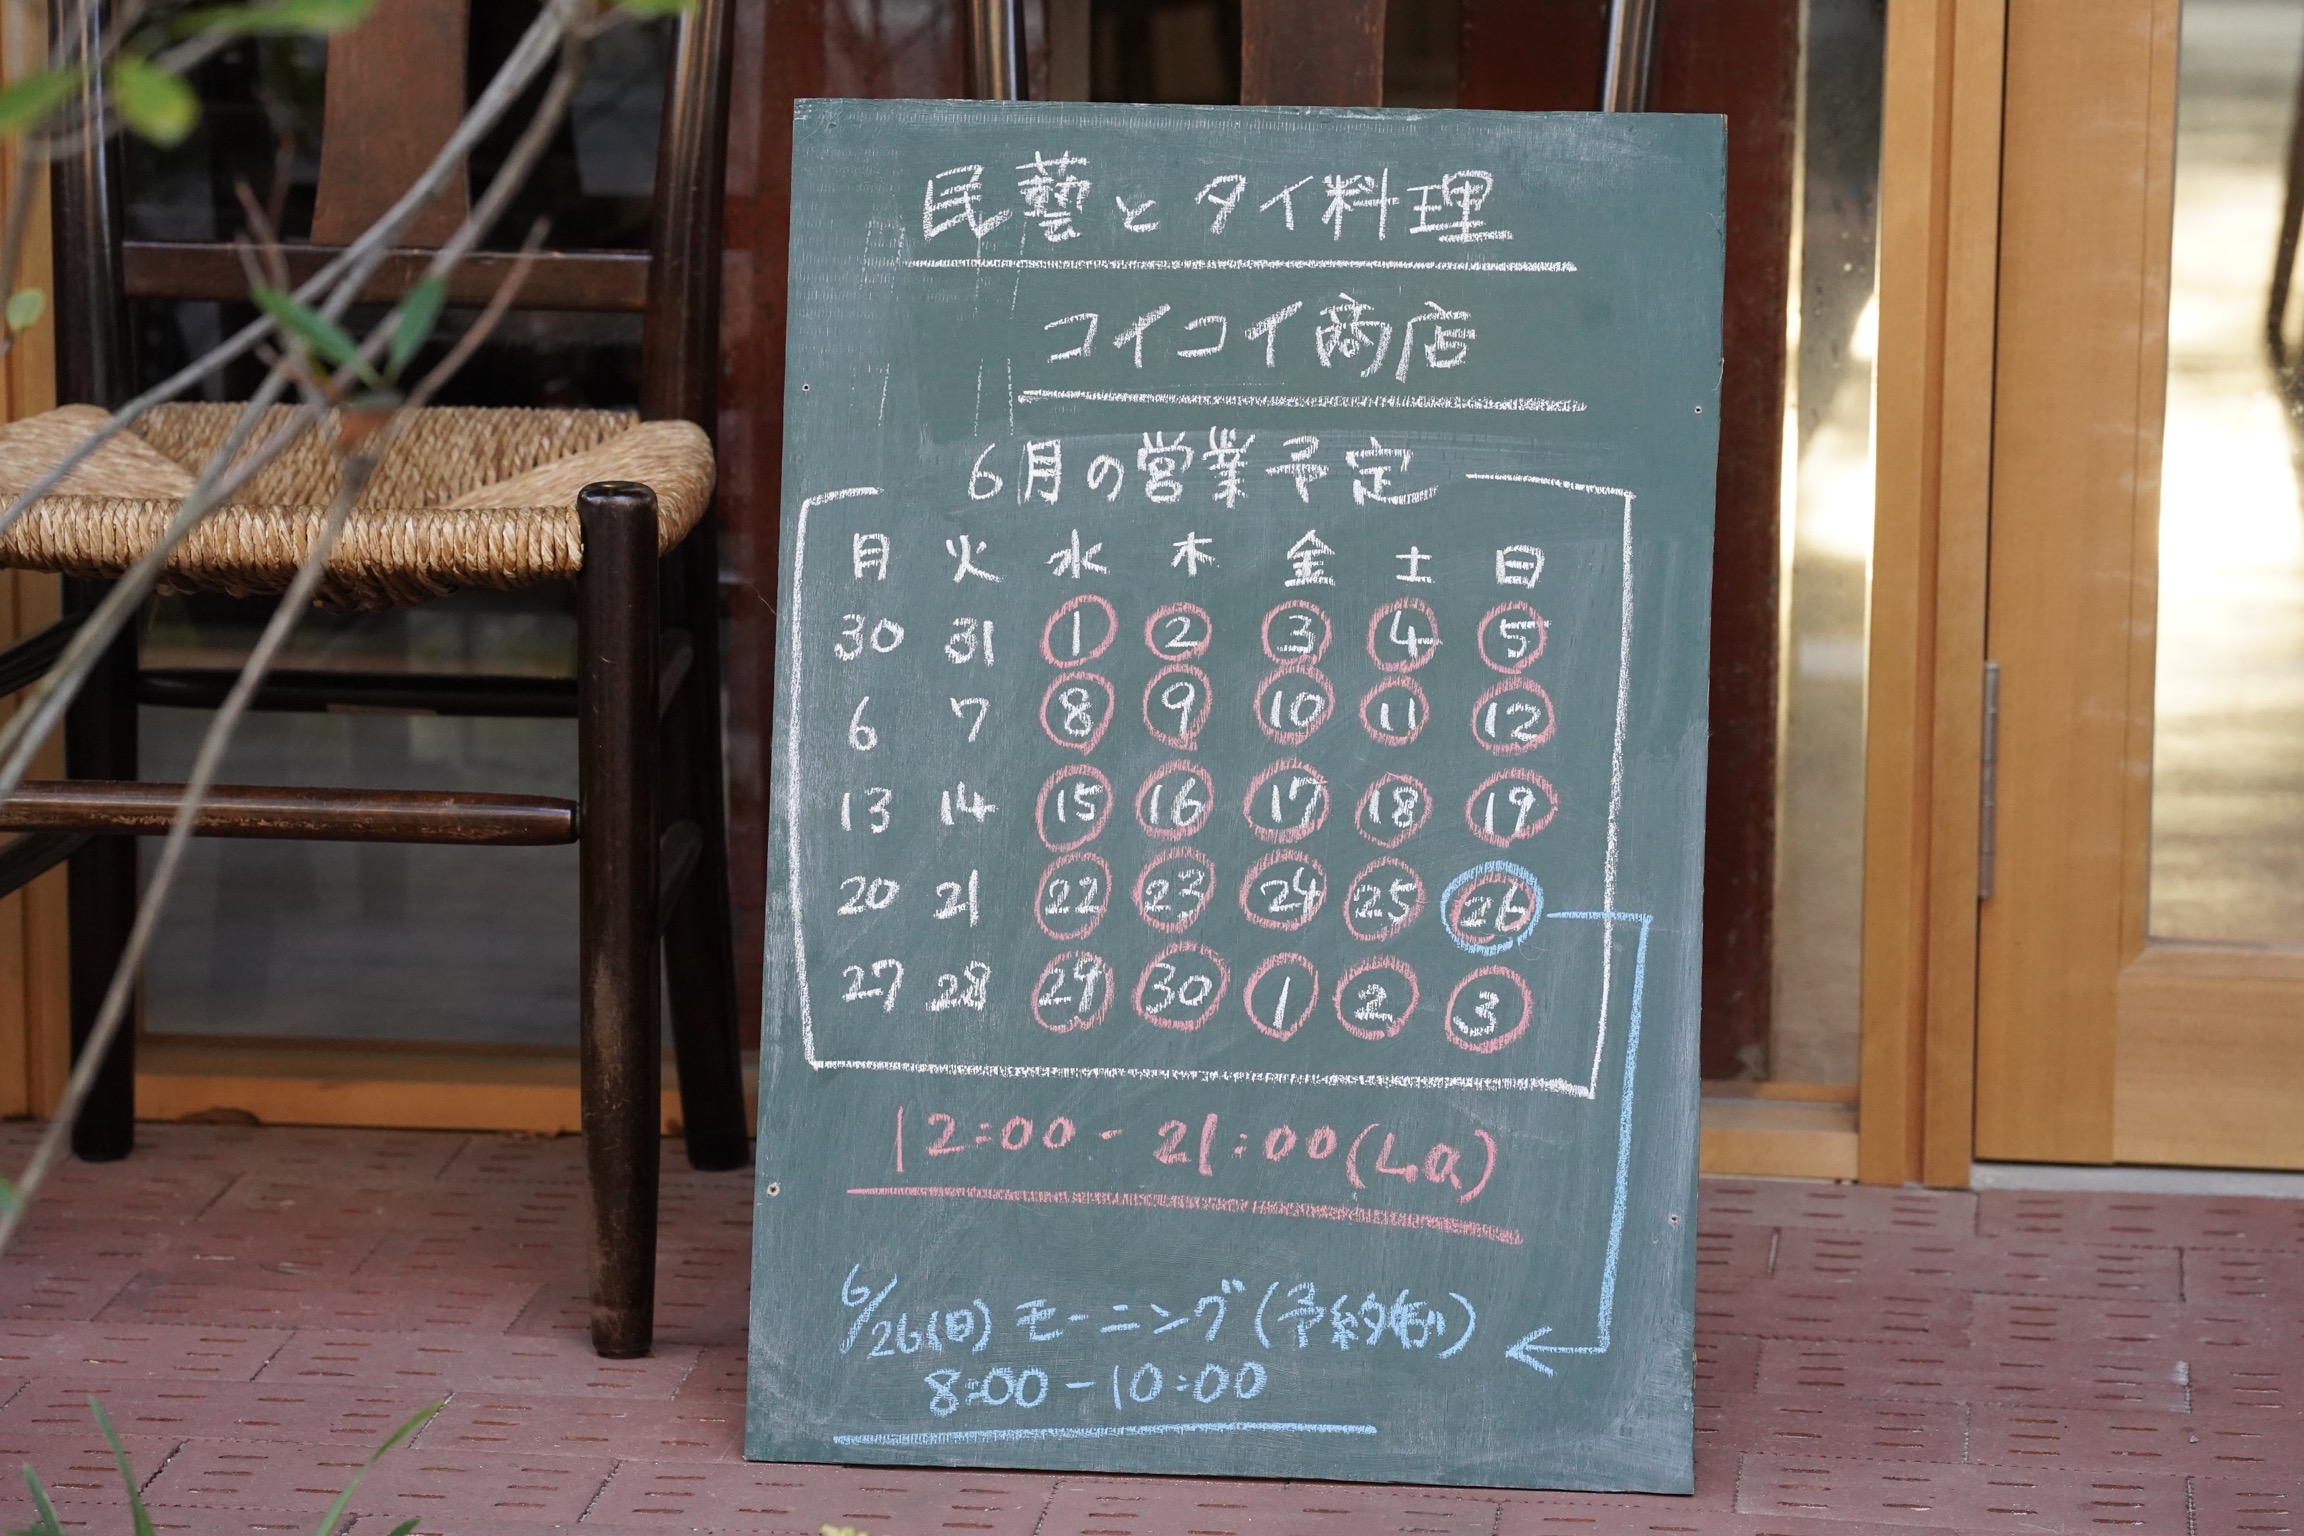 民藝とタイ料理
コイコイ商店
6月の営業予定
月 火 水 木 金 土 日
30 31 1 2 3 4 5
6 7 8 9 10 11 12
13 14 15 16 17 18 19
20 21 22 23 24 25 26
27 28 29 30 1 2 3
12:00-21:00(Lo)
6/26(日)モーニング(予約制)
8:00-10:00